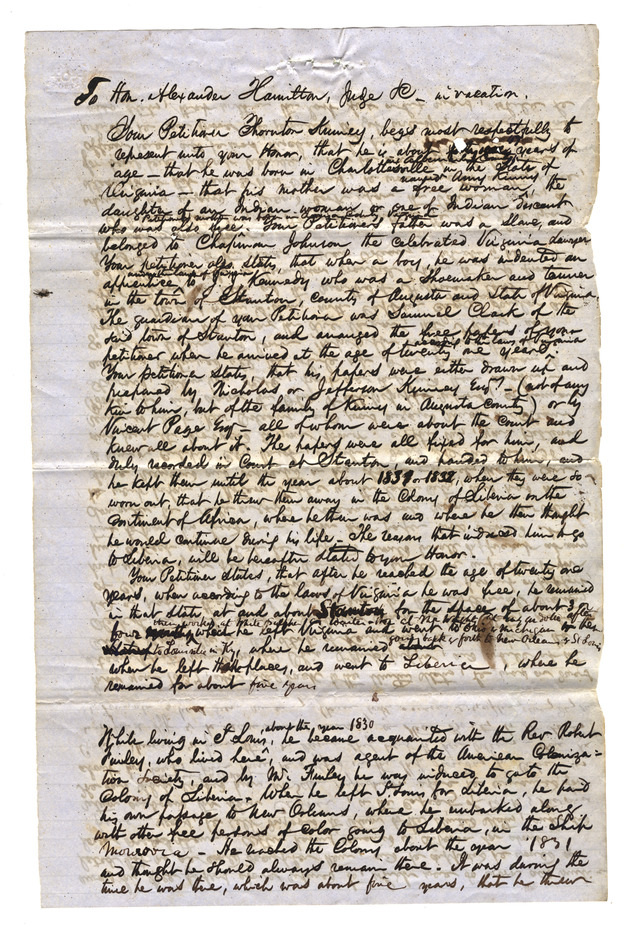 To Hon. Alexander Hamilton, Juge &c - in vacation.
Your Petitioner Thornton Kinney, begs most respectfully to
represent unto your Honor, that he is about years of
age - that he was born in Charlottesville in the State of
named Amy Kinney
Virginia - that his mother was a free woman, the
daughter of an Indian woman or one of Indian descent
who was also free. Your Petitioner's father was a slave, and
belonged to Chapman Johnson the celebrated Virginia lawyer
Your petitioner also states, that when a boy, he was indented an
apprentice to Kennedy who was a Shoemaker and tanner
in the town of Stanton, county of Augusta and State of Virginia.
The guardian of your Petitioner was Samuel Clark of the
said town of Stanton, and arranged the free papers of your
according to the laws of Virginia
petitioner when he arrived at the age of twenty one years.
Your Petitioner states, that his papers were either drawn up and
prepared by Nicholas or Jefferson Kinney Esqrs - (not of any
kin to him, but of the family of Kinney in Augusta county) or by
Vincent Page Esq - all of whom were about the court and
knew all about it. The papers were all fixed for him, and
duly recorded in Court at Stanton, and handed to him, and
he kept them until the year about or 1832, when they were so
worn out, that he threw them away in the Colony of Liberia on the
Continent of Africa, where he then was and where he then thought
he would continue during his life - The reasons that induced him to go
to Liberia, will be hereafter stated to your Honor.
Your Petitioner states, that after he reached the age of twenty one
years, when according to the laws of Virginia he was free, he remained
in that state, at and about Stanton for the space of about 3
he left Virginia and went to
going back & forth to New Orleans & St Louis
to Louisville in Ky, where he remained
when he left places, and went to Liberia, where he
remained for about five years
about the year 1830
While living in St Louis, he became acquainted with the Rev Robert
Finley, who lived here, and was agent of the American Coloniza-
tion Society, and by Mr. Finley he was induced to go to the
Colony of Liberia. When he left St Louis for Liberia, he paid
his own passage to New Orleans, where he embarked along
with other free persons of color going to Liberia, in the Ship
Monrovia - He reached the Colony about the year 1831
and thought he should always remain there. It was during the
time he was there, which was about five years, that he threw